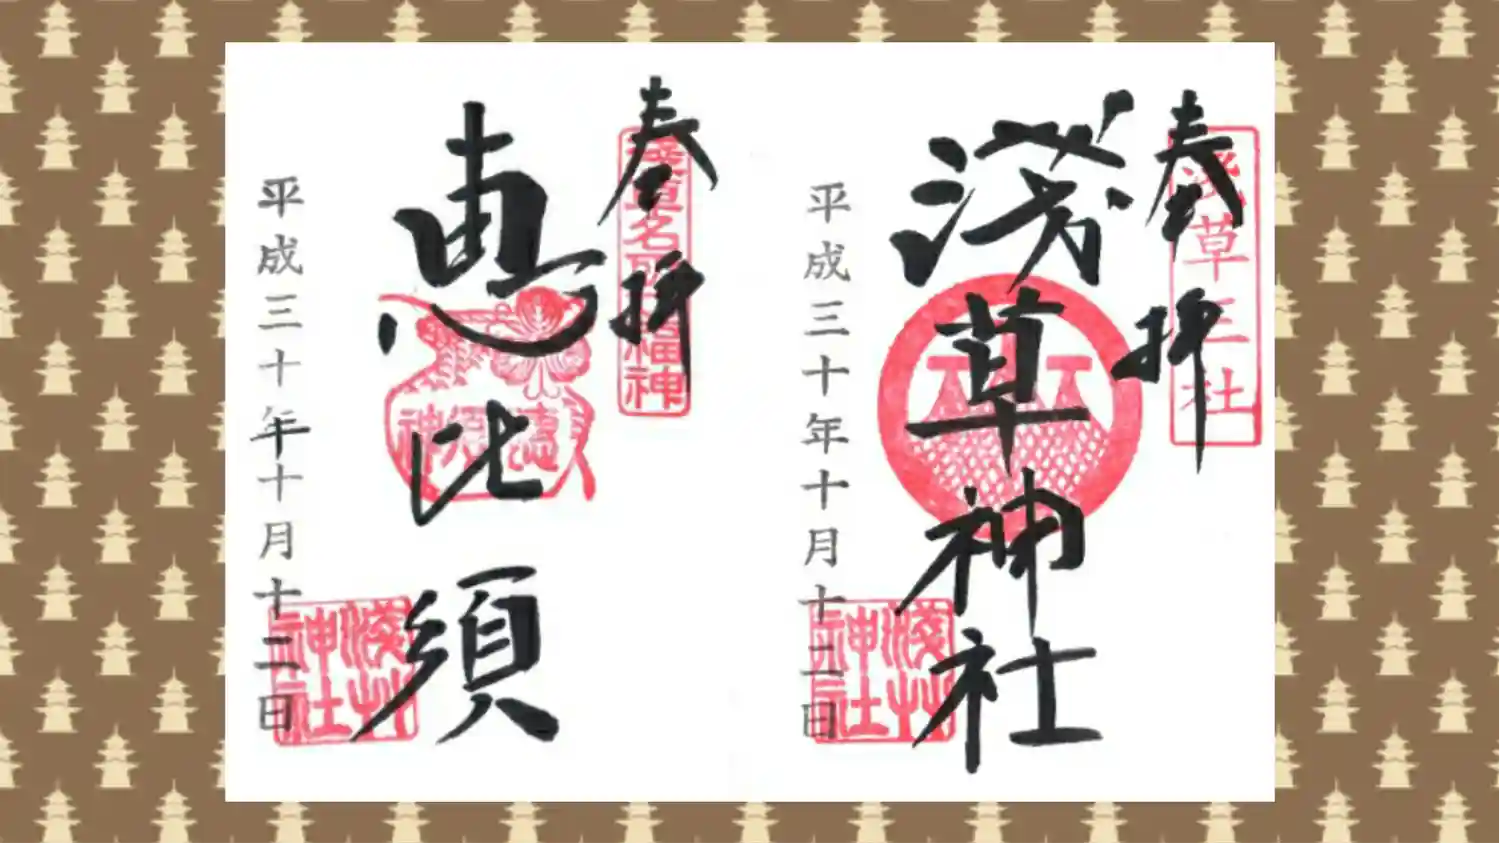 奉拝
浅草三社
浅草神社
平成三十年十月十二日
浅草神社
奉拝
浅草名所七福神
恵比須
恵比須神
平成三十年十月十二日
浅草神社